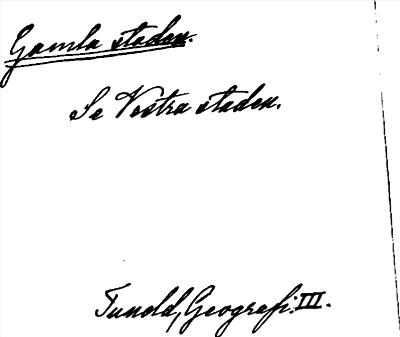 Gamla staden.
Se Vestra staden.
Tuneld, Geografi. III.